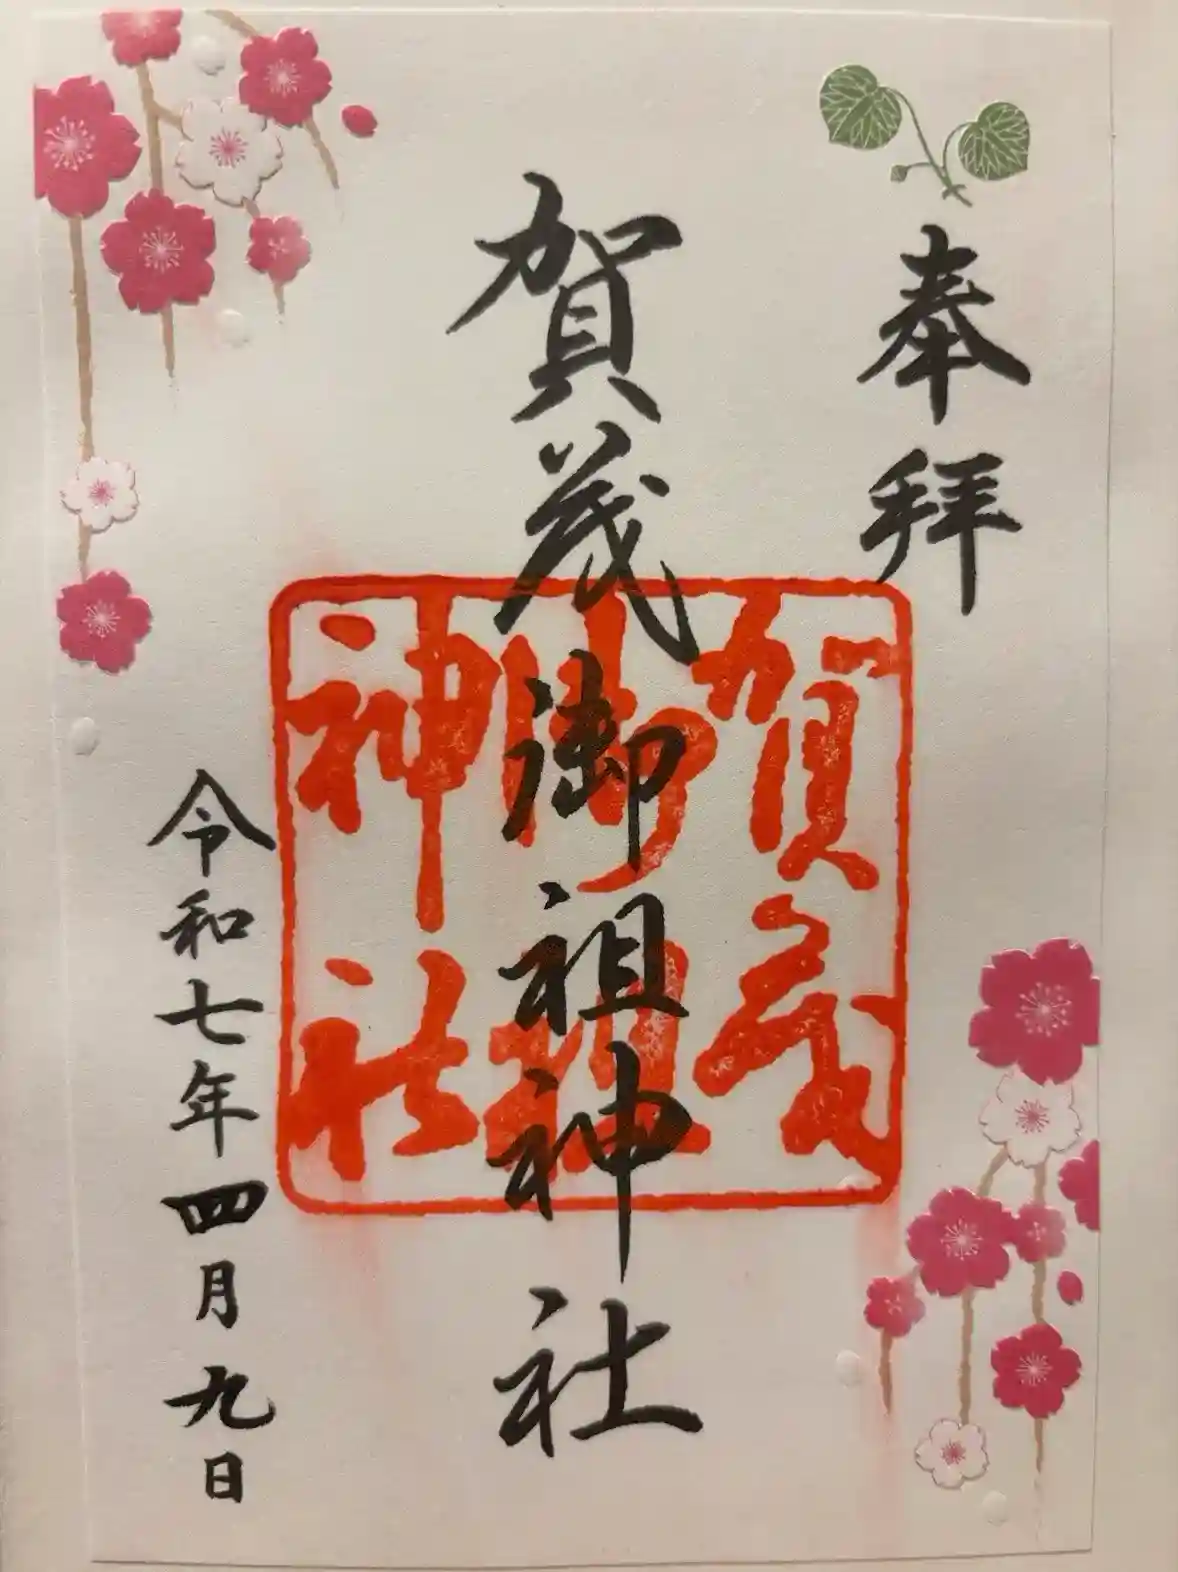 奉拝
賀茂御祖神社
賀茂
御祖
神社
令和七年四月九日